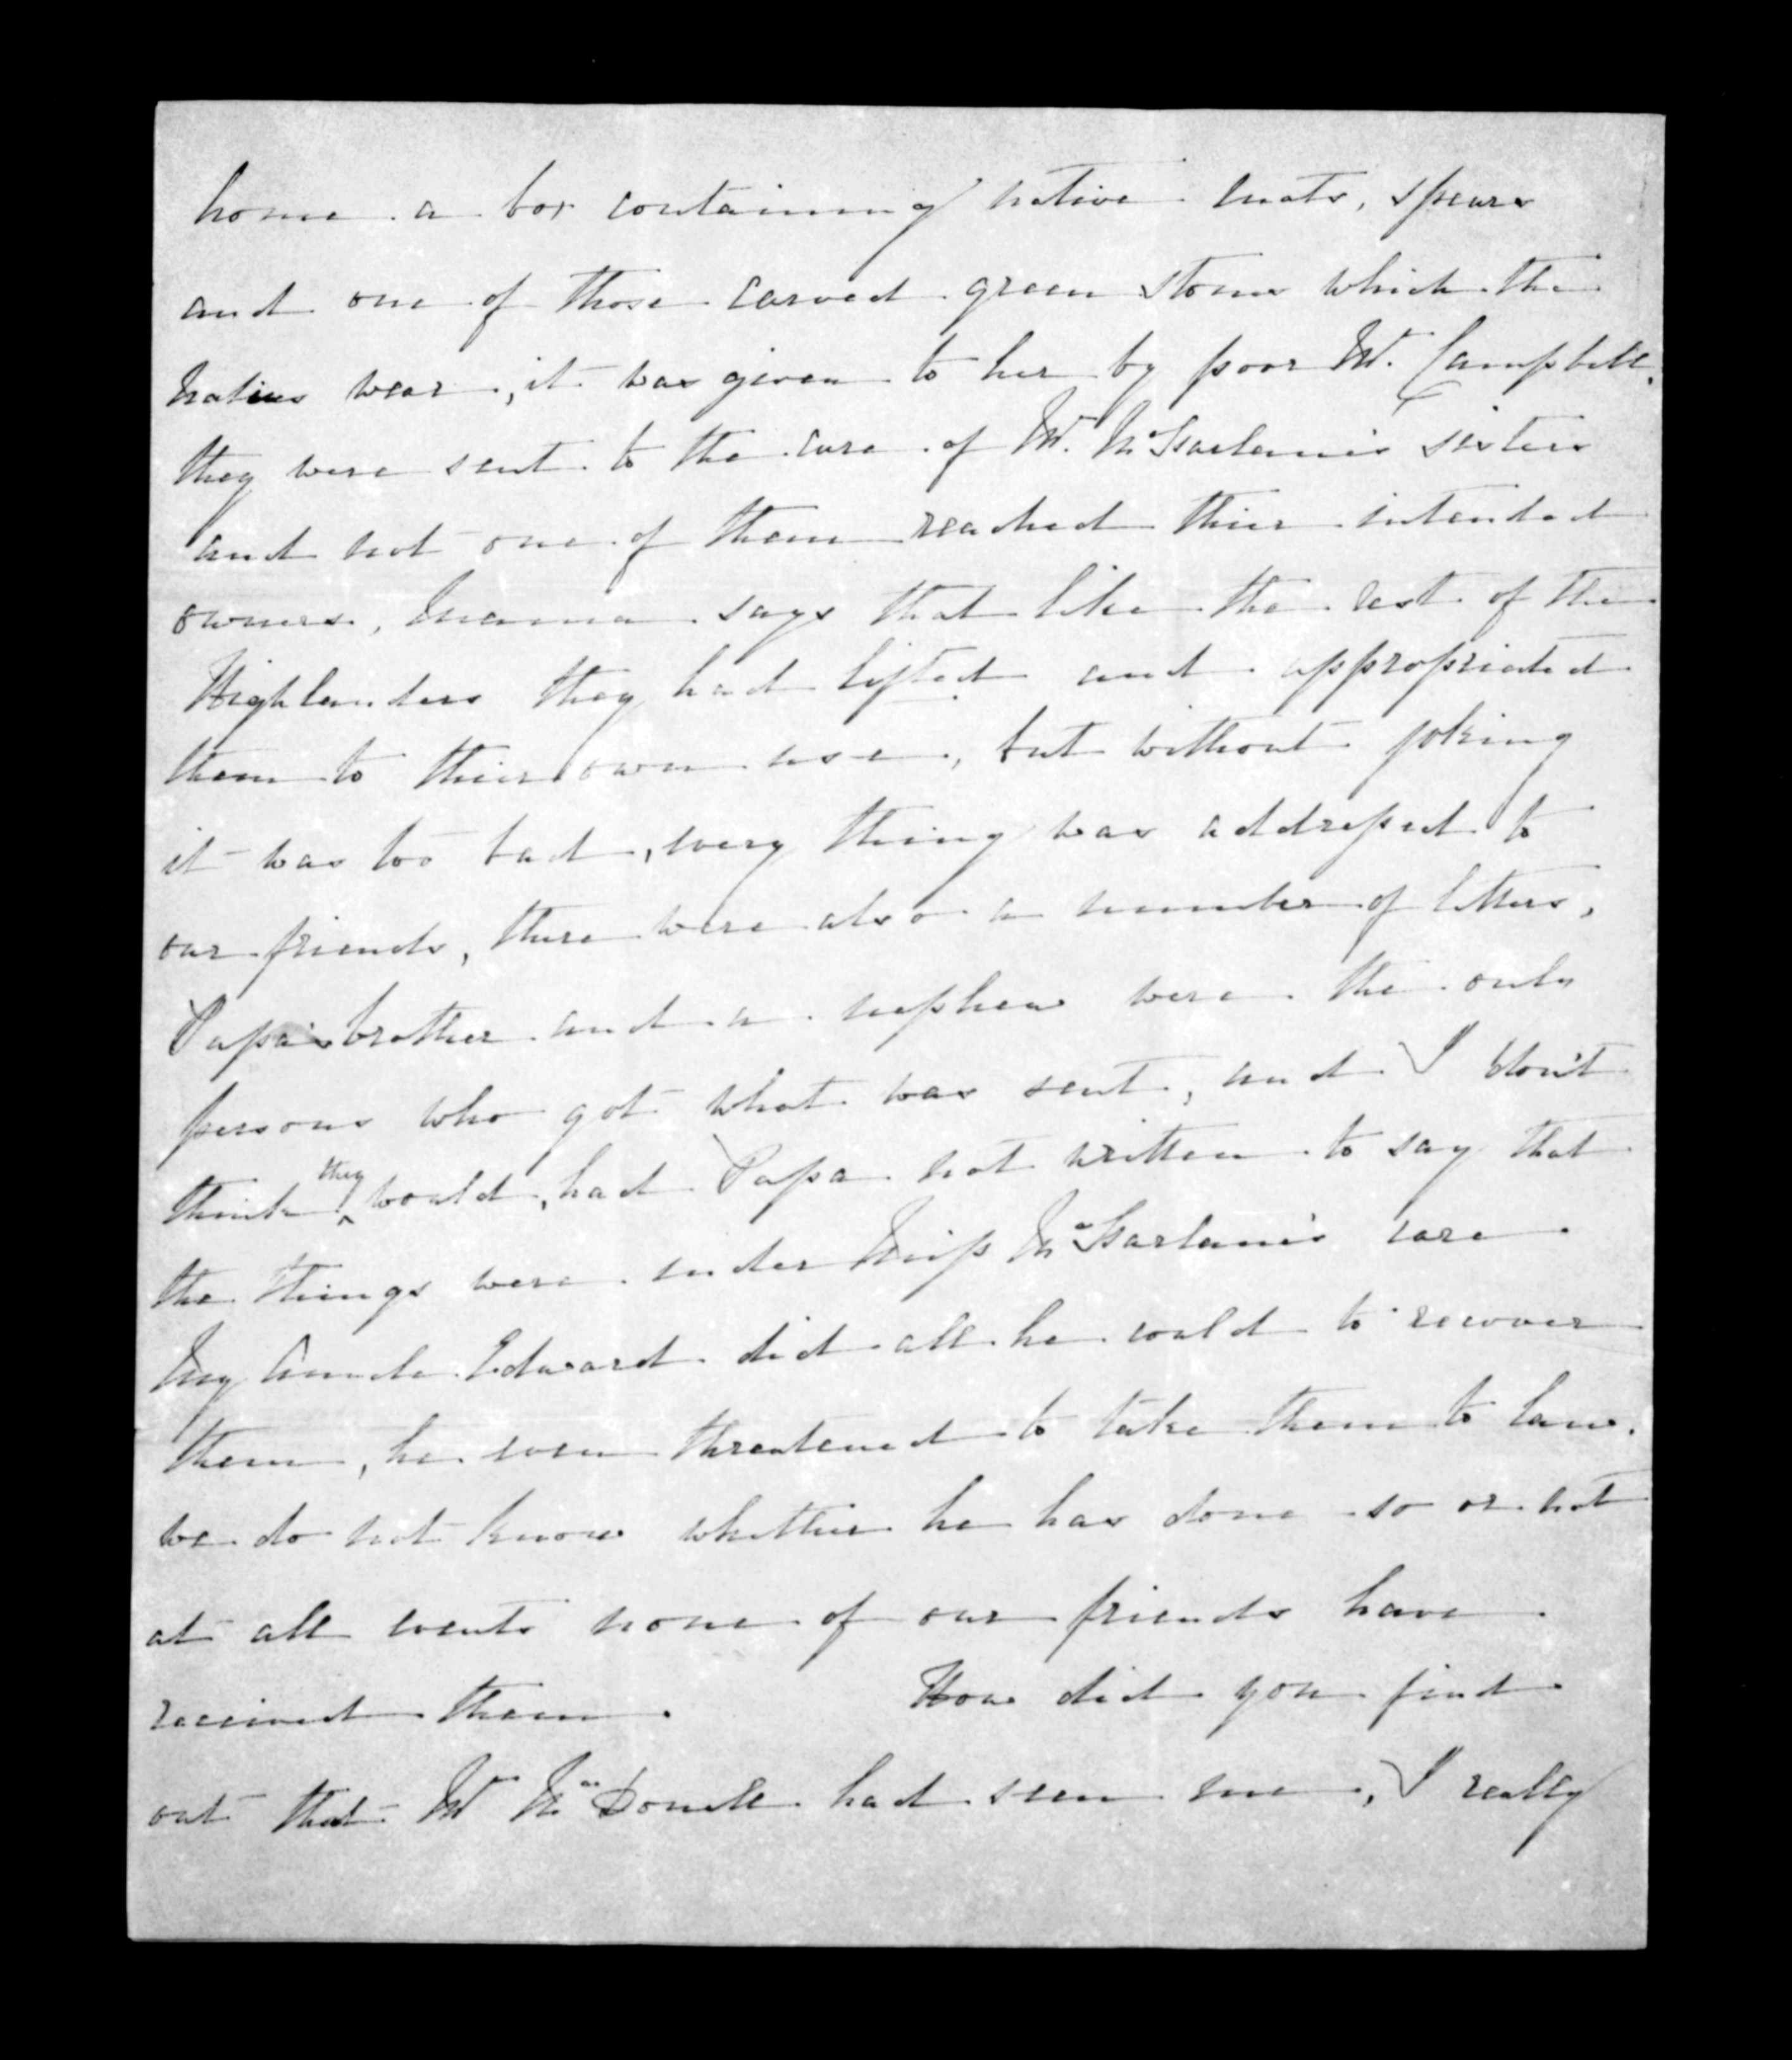 home a box containing native mats, spears
and one of those carved green stones which the
natives wear, it was given to her by poor Mr. Campbell,
they were sent to the care of Mr. McFarlane's sisters
and not one of them reached thier intended
owners, Mamma says that like the rest of the
Highlanders they had lifted and appropriated
them to thier own use, but without joking
it was too bad, every thing was addressed to
our friends, there were also a number of letters,
Papa's brother and a nephew were the only
persons who got what was sent, and I don't
think they would, had Papa not written to say that
the things were under Miss McFarlane's care
My Uncle Edward did all he could to recover
them, he even threatened to take them to law.
we do not know whether he has done so or not
at all events none of our friends have
received them. How did you find
out that Mr McDonell had seen me, I really